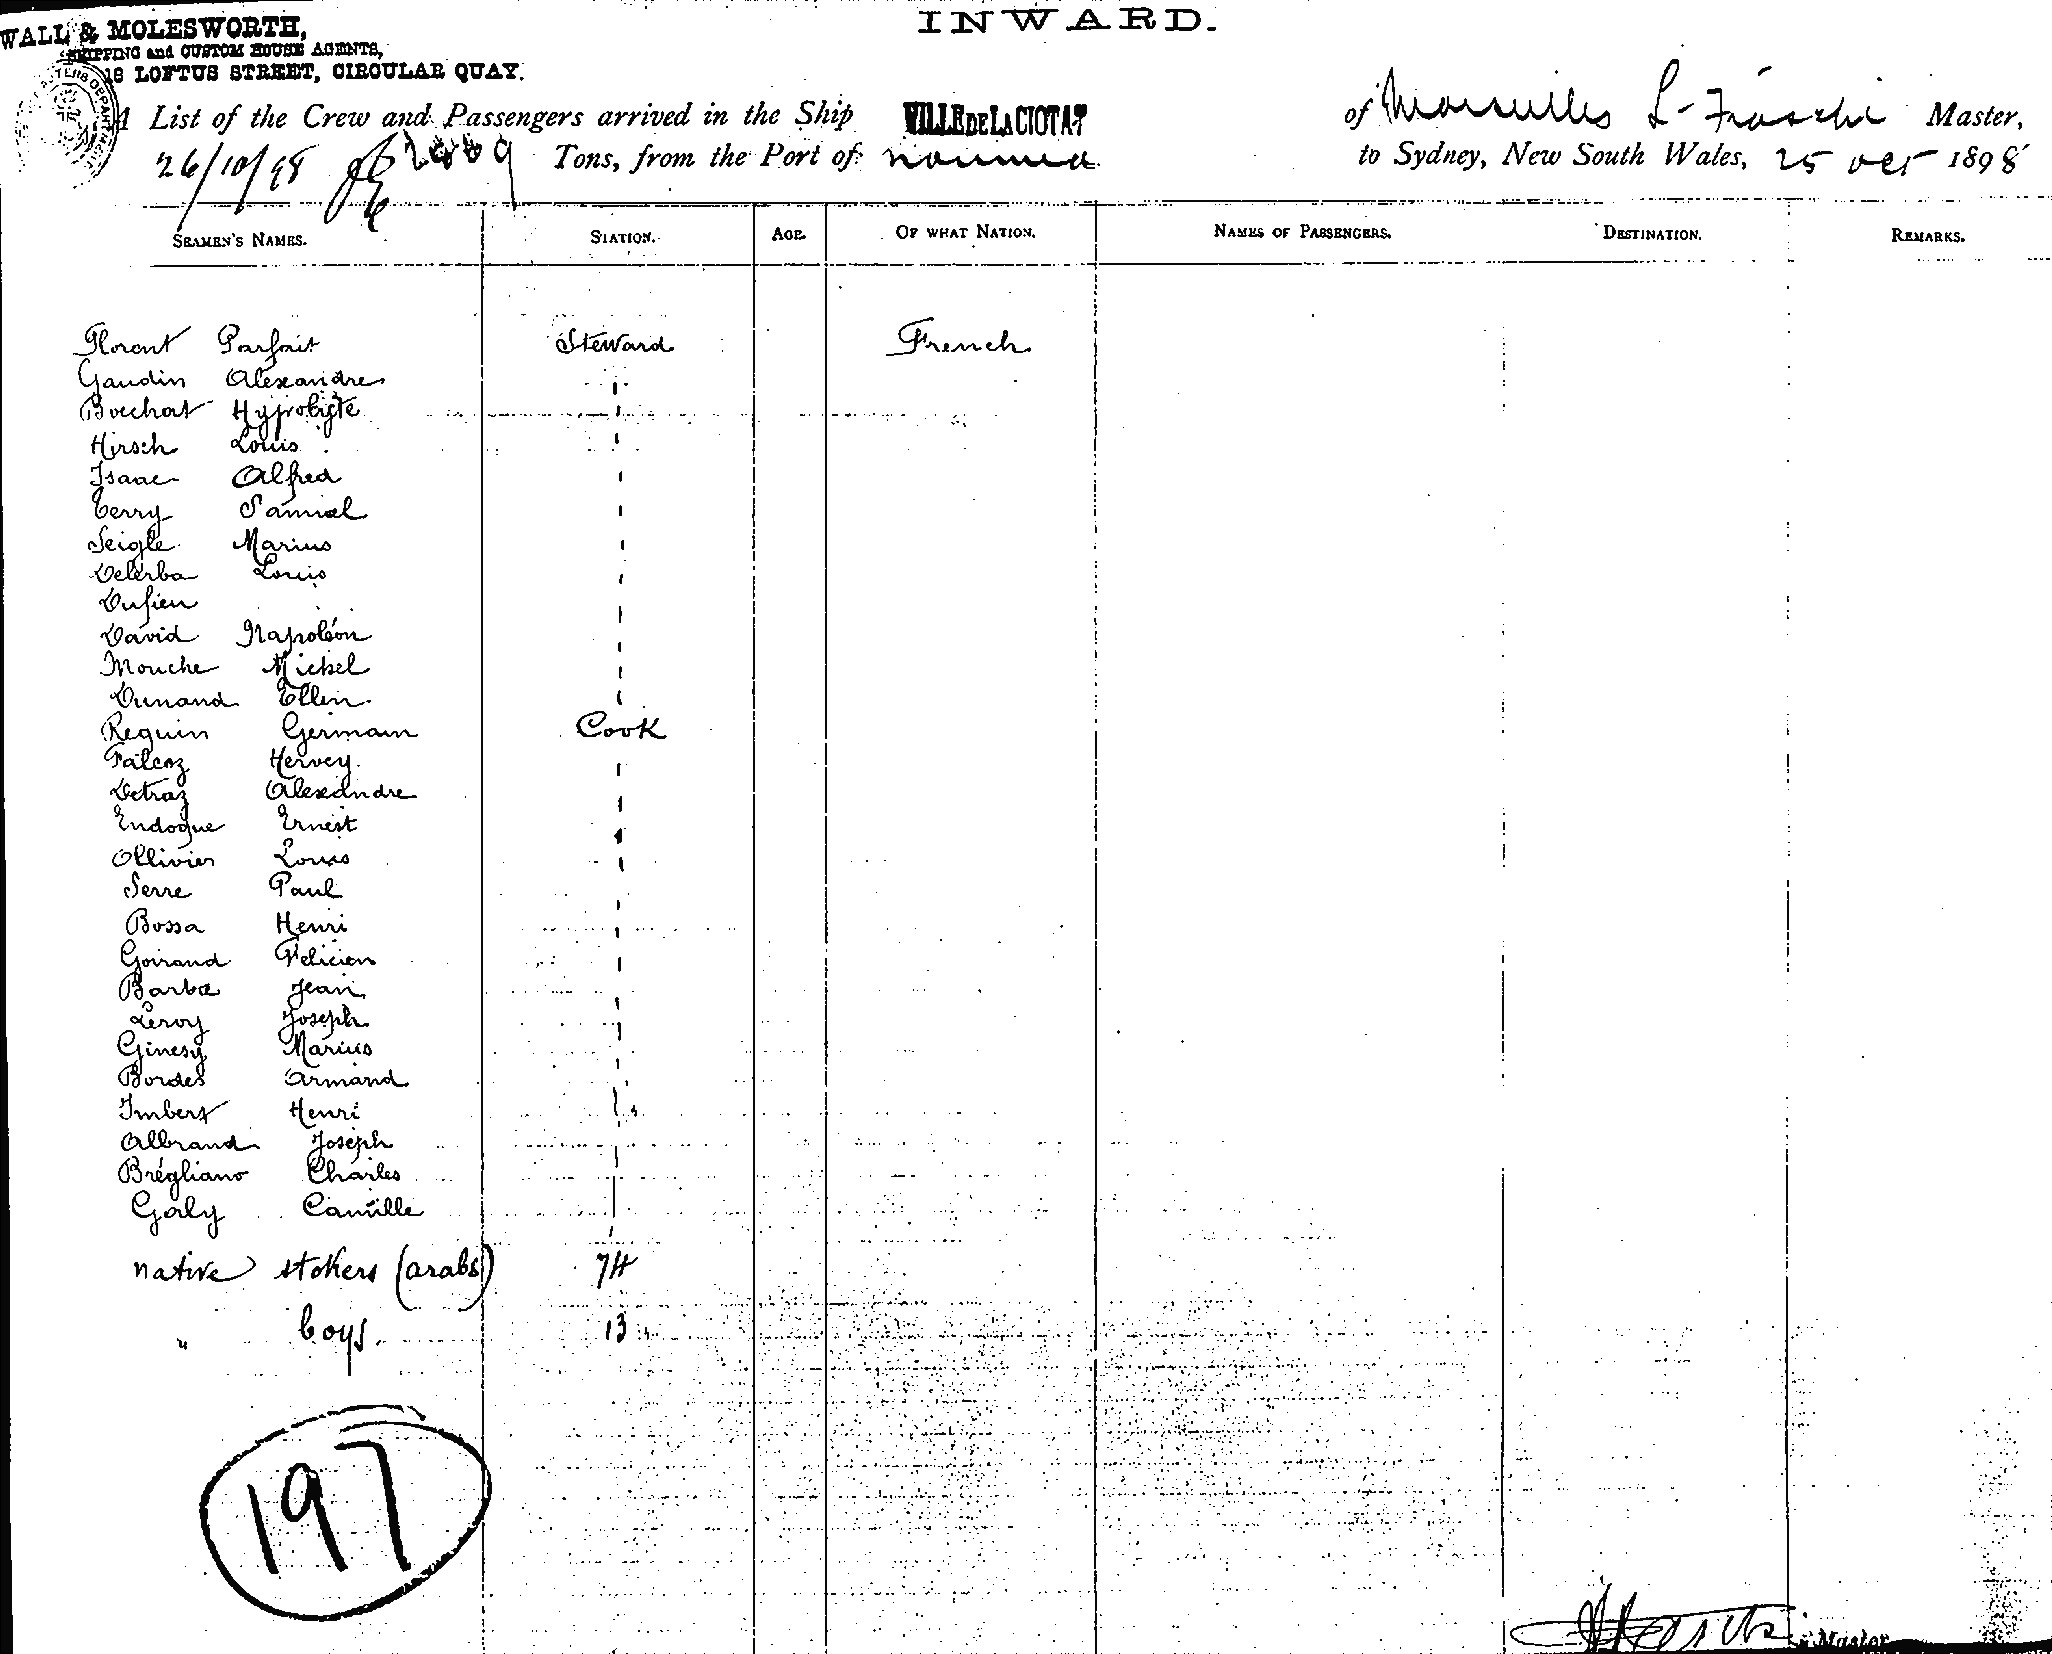 INWARD.
WALL & MOLESWORTH,
SHIPPING and CUSTOM HOUSE AGENTS,
18 LOFTUS STREET, CIRCULAR QUAY.
A List of the Crew and Passengers arrived in the Ship VILLE DE LA CIOTAT of Marseilles L. Fiaschi Master,
26/10/98 Tons, from the Port of noumea to Sydney, New South Wales, 25 Oct 1898
SEAMEN'S NAMES. STATION. AGE. OF WHAT NATION. NAMES OF PASSENGERS. DESTINATION. REMARKS.
Florent Parfait Steward French
Gaudin Alexandre
Bouchat Hypolyte
Hirsch Louis
Isaac Alfred
Terry Samuel
Seigle Marius
Delerba Louis
Dufieu
David Napoléon
Mouche Michel
Dunand Ellen
Requin Germain Cook
Falcoz Hervey
Detraz Alexandre
Endogue Ernest
Ollivier Louis
Serre Paul
Bossa Henri
Goirand Felicien
Barbe Jean
Leroy Joseph
Ginesy Marius
Bordes Armand
Imbert Henri
Albrand Joseph
Brégliano Charles
Galy Camille
native stokers (arabs) 74
" boys. 13
197
Master